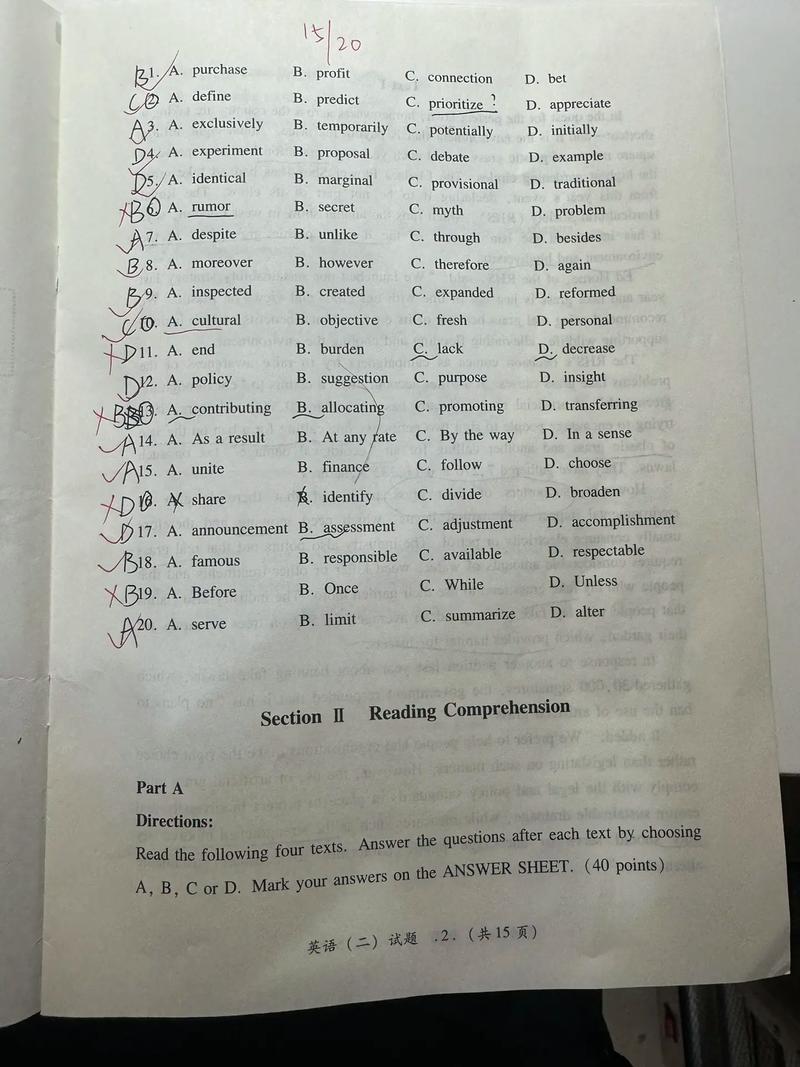 15/20
B 1. A. purchase B. profit C. connection D. bet
C 2 A. define B. predict C. prioritize ? D. appreciate
A 3. A. exclusively B. temporarily C. potentially D. initially
D 4. A. experiment B. proposal C. debate D. example
D 5. A. identical B. marginal C. provisional D. traditional
B 6 A. rumor B. secret C. myth D. problem
A 7. A. despite B. unlike C. through D. besides
B 8. A. moreover B. however C. therefore D. again
B 9. A. inspected B. created C. expanded D. reformed
C 10. A. cultural B. objective C. fresh D. personal
D 11. A. end B. burden C. lack D. decrease
D 12. A. policy B. suggestion C. purpose D. insight
B 13. A. contributing B. allocating C. promoting D. transferring
A 14. A. As a result B. At any rate C. By the way D. In a sense
A 15. A. unite B. finance C. follow D. choose
D 16. A. share B. identify C. divide D. broaden
D 17. A. announcement B. assessment C. adjustment D. accomplishment
B 18. A. famous B. responsible C. available D. respectable
B 19. A. Before B. Once C. While D. Unless
A 20. A. serve B. limit C. summarize D. alter
Section II Reading Comprehension
Part A
Directions:
Read the following four texts. Answer the questions after each text by choosing
A, B, C or D. Mark your answers on the ANSWER SHEET. (40 points)
英语(二)试题 .2.(共15页)